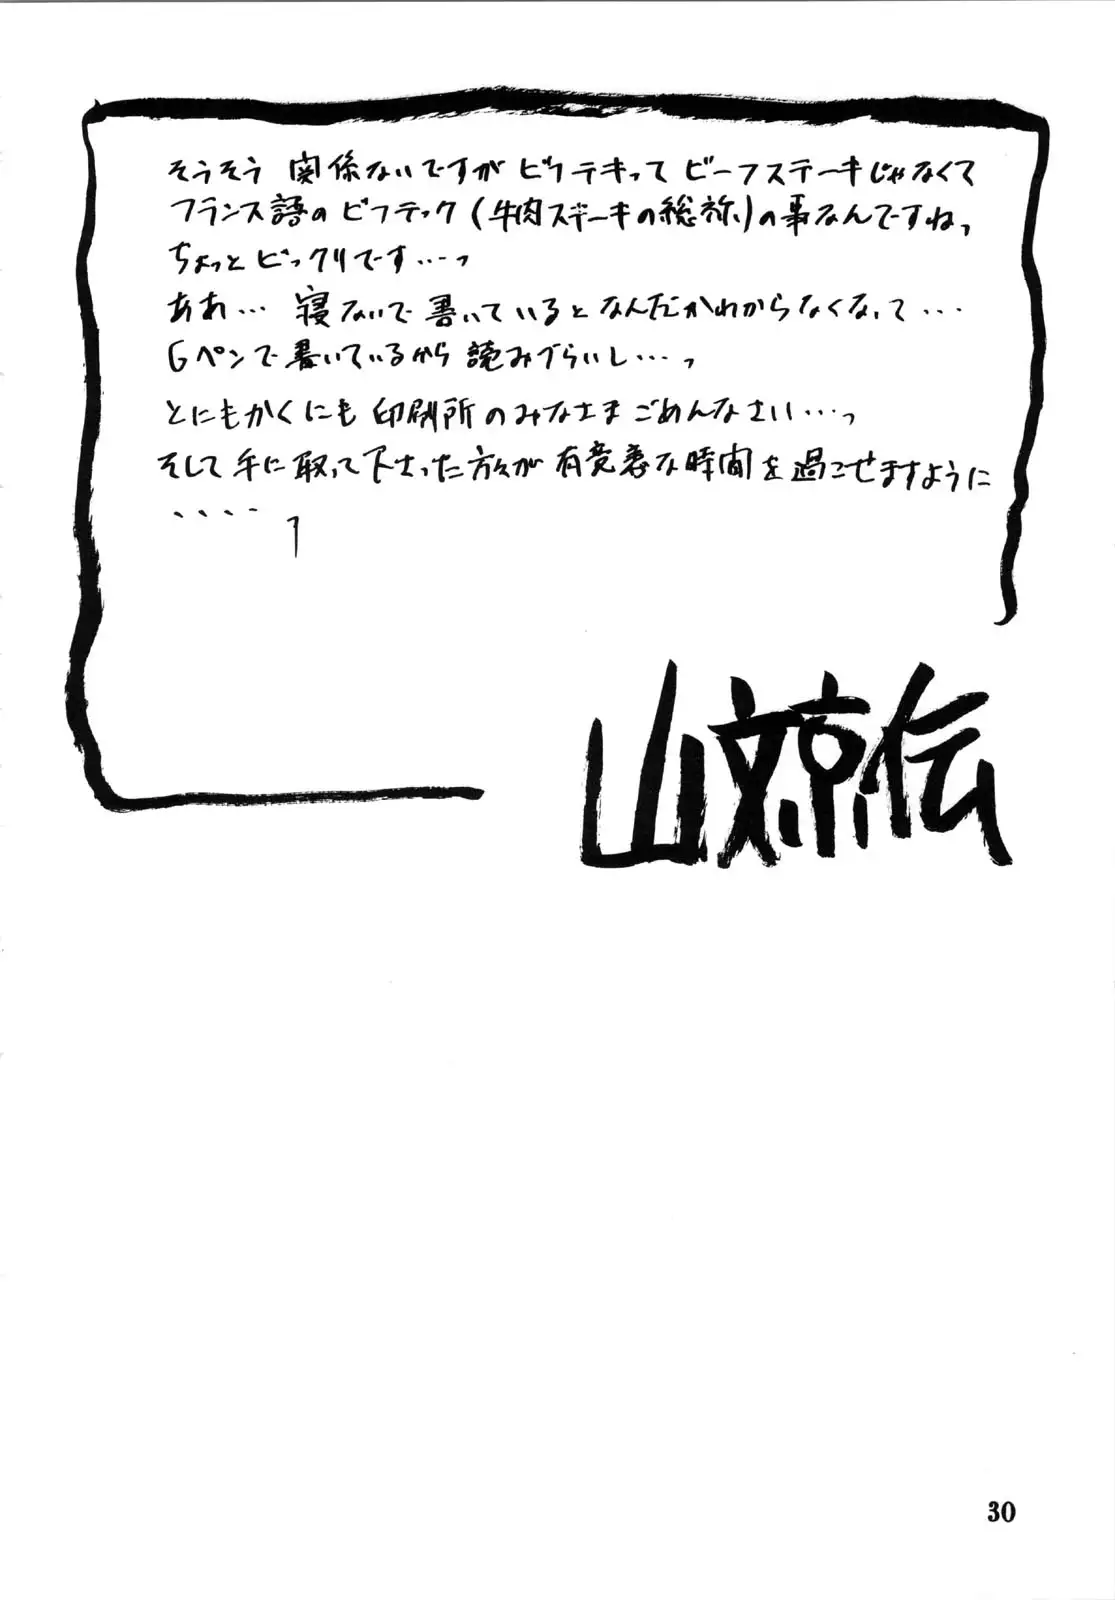 そうそう 関係ないですが ビフテキって ビーフステーキじゃなくて
フランス語のビフテック(牛肉ステーキの総称)の事なんですねっ
ちょっとビックリです…っ
ああ… 寝ないで書いているとなんだかわからなくなって…
Gペンで書いているから読みづらいし…っ
とにもかくにも印刷所のみなさまごめんなさい…っ
そして手に取って下さった方々が有意義な時間を過ごせますように
‥‥
山文京伝
30